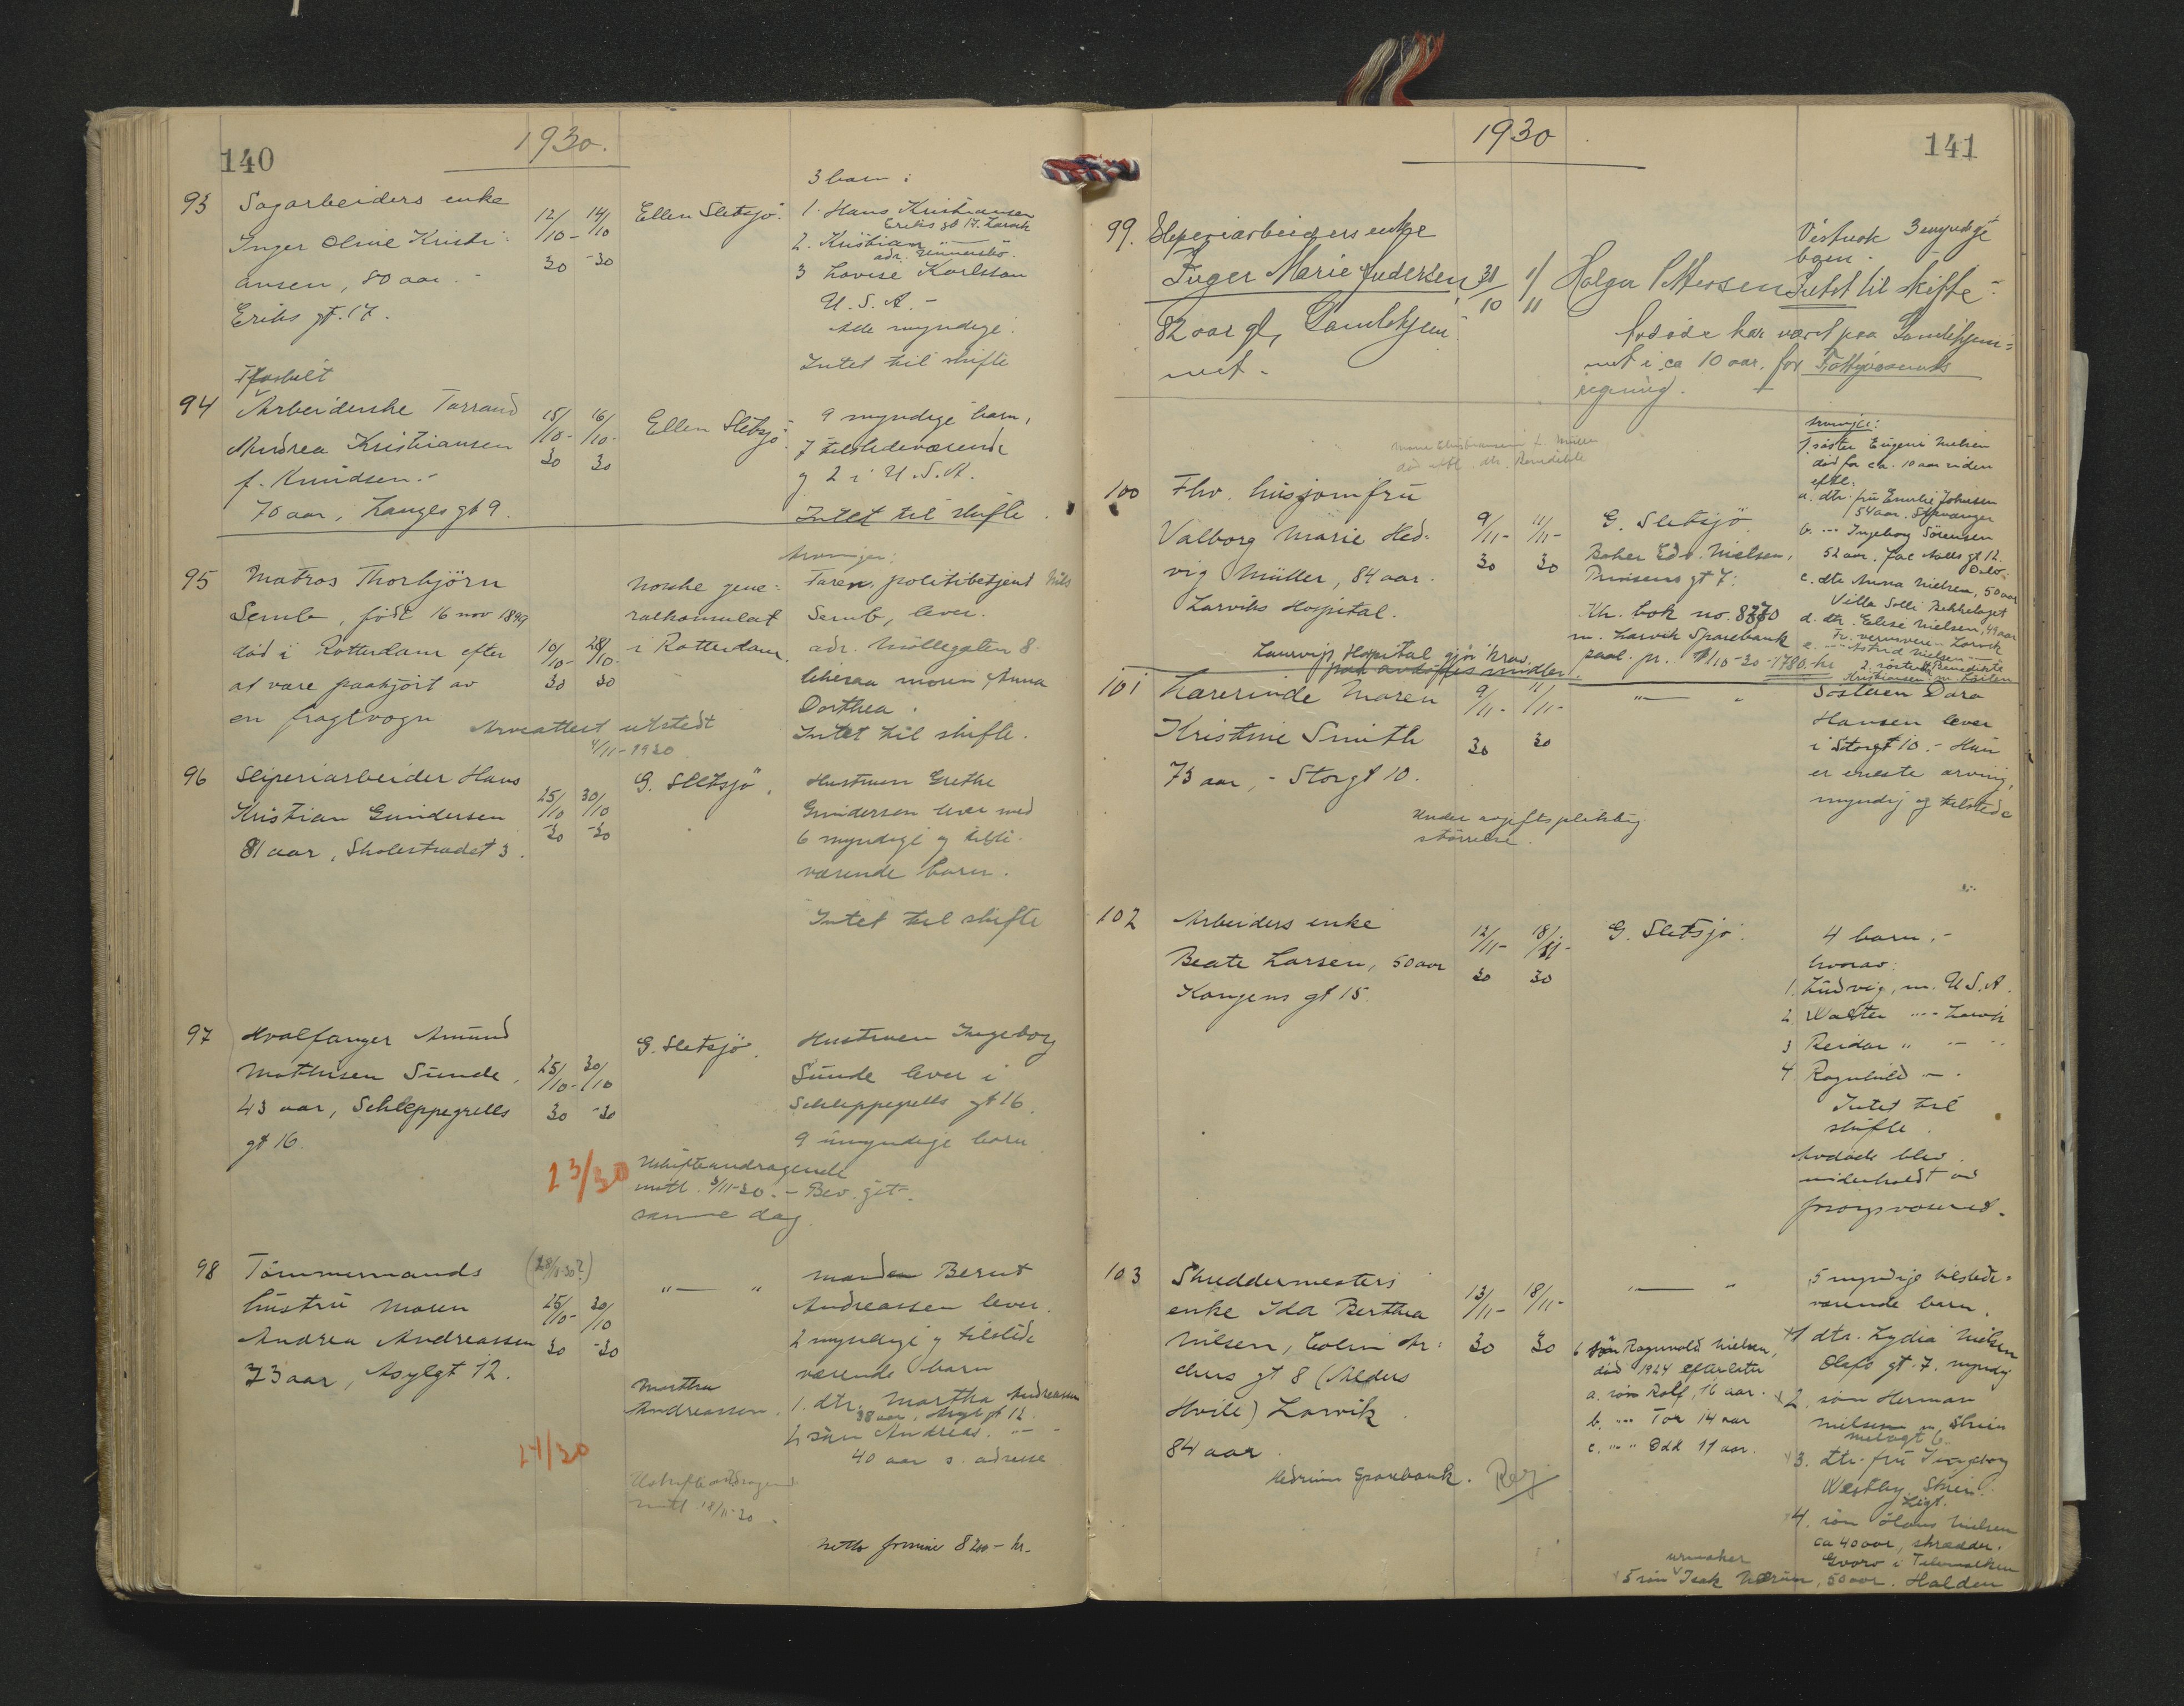 140
1930.
93 Sagarbeiders enke
Inger Oline Kristi-
ansen, 80 aar.
Eriks gt. 17.
12/10-30 14/10-30
Ellen Sletsjö.
3 barn:
1. Hans Kristiansen
Eriks gt 17. Larvik
2. Kristian —"—
adr.
3 Lovise Karlsson
U.S.A.-
Alle myndige.
Intet til skifte
94 Arbeiderske
Andrea Kristiansen
f. Knudsen.-
70 aar, Langes gt 9.
15/10-30 16/10-30
Ellen Sletsjö.
9 myndige barn,
7 tilstedeværende
og 2 i U.S.A.
Intet til skifte.
95 Matros Thorbjörn
Semb, födt 16 nov 1899
död i Rotterdam efter
at være paakjört av
en fragtvogn
10/10-30 28/10-30
Norske gene-
ralkonsulat
i Rotterdam.
Arvinger:
Faren, politibetjent Nils
Semb, lever.
adr. Möllegaten 8.
likesaa moren Anna
Dorthea.
Intet til skifte.
Arveattest utstedt
4/11-1930
96 Sliperiarbeider Hans
Kristian Gundersen
81 aar, Skolestrædet 3.
25/10-30 30/10-30
G. Sletsjö.
Hustruen Grethe
Gundersen lever med
6 myndige og tilste-
værende barn.
Intet til skifte
97 Hvalfanger Amund
Mathisen Sunde,
43 aar, Schleppegrells
gt 16.
25/10-30 30/10-30
G. Sletsjö.
Hustruen Ingeborg
Sunde lever i
Schleppegrells gt 16.
9 umyndige barn
23/30
Uskifteandragende
mottl. 3/11-30. - Bev. git
samme dag.
98 Tömmermands
hustru Maren
Andrea Andreassen
73 aar, Asylgt 12.
(28/10-30?)
25/10-30 30/10-30
"—"
Manden Bernt
Andreassen lever.
2 myndige og tilstede
værende barn
1. dtr. Martha Andreassen
38 aar, Asylgt 12.
2. sön Andreas. —"—
40 aar s. adresse
Martha
Andreassen.
24/30
Uskifteandragende
mottl 18/11-30.
Netto formue 8200- kr.
141
1930
99. Sliperiarbeiders enke
Inger Marie Andersen,
82 aar gl, Gamlehjem-
met -
31/10 1/11
Holger Pettersen
Vistnok 3 myndige
barn.
Intet til skifte -
Avdöde har været paa Gamlehjem-
met i ca 10 aar, for
regning.
Marie Christiansen f. Müller
100 Fhv. husjomfru
Valborg Marie Hed-
vig Müller, 84 aar.
Larviks Hospital.
9/11-30 11/11-30
G. Sletsjö
Baker Edv. Nielsen,
Prinsens gt 7.
Kh. bok no. 8370
m. Larvik Sparebank
paal. pr. 1/10-30 - 1780. kr
Laurvigs Hospital gjör krav
paa avdödes midler.
Arvinger:
1. söster Eugenie Nielsen
död for ca. 10 aar siden
efterl.
a. dtr. fru Emilie Johnsen
54 aar. Stavanger
b. --- Ingeborg Sörensen
52 aar. Jac Aalls gt 12.
Oslo.
c. dtr Anna Nielsen, 50 aar
Villa Solli Bekkelaget
d. dtr. Elise Nielsen, 49 aar
Larvik
e. --- Astrid Nielsen ---
2. söster Benedikte
Kristiansen
101 Lærerinde Maren
Kristine Smith
73 aar, - Storgt 10.
9/11-30 11/11-30
—"—
Söster Dora
Hansen lever
i Storgt 10. - Hun
er eneste arving,
myndig og tilstede
Under avgiftspliktig
störrelse.
102 Arbeiders enke
Beate Larsen, 50 aar
Kongens gt 15.
12/11-30 18/11-30
G. Sletsjö.
4 barn.-
hvorav:
1. Ludvig, m. U.S.A.
2. Walter "-- Larvik
3 Reidar " — "
4. Ragnhild —.
Intet til
skifte.
Avdöde blev
underholdt av
forsorgsvæsenet.
103 Skreddermesters
enke Ida Berthea
Nilsen, Colin Ar-
chers gt 8 (Alders
Hvile) Larvik.
84 aar.
13/11-30 18/11-30
—"—
Hedrum Sparebank. Reg
6 sön Ragnvald Nielsen,
död 1924 efterlater
a. sön Rolf, 16 aar.
b. --- Tor 14 aar
c. --- Odd 11 aar.
5 myndige tilstede-
værende barn.
1 dtr. Lydia Nielsen
Olafs gt. 7. myndig
2. sön Herman
Nielsen, Skien
3. dtr. fru Ingeborg
Westby. Skien.
4. sön Olaus Nielsen
ca 40 aar, skrædder.
i Telemarken
urmaker
5 sön Isak, 50 aar. Halden